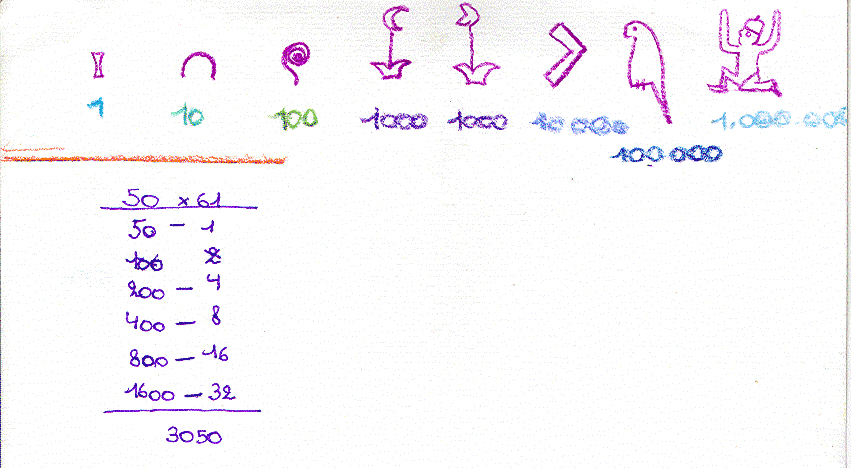 1 10 100 1000 1000 10 000 1.000.000
100 000
50 × 61
50 — 1
100 2
200 — 4
400 — 8
800 — 16
1600 — 32
3050